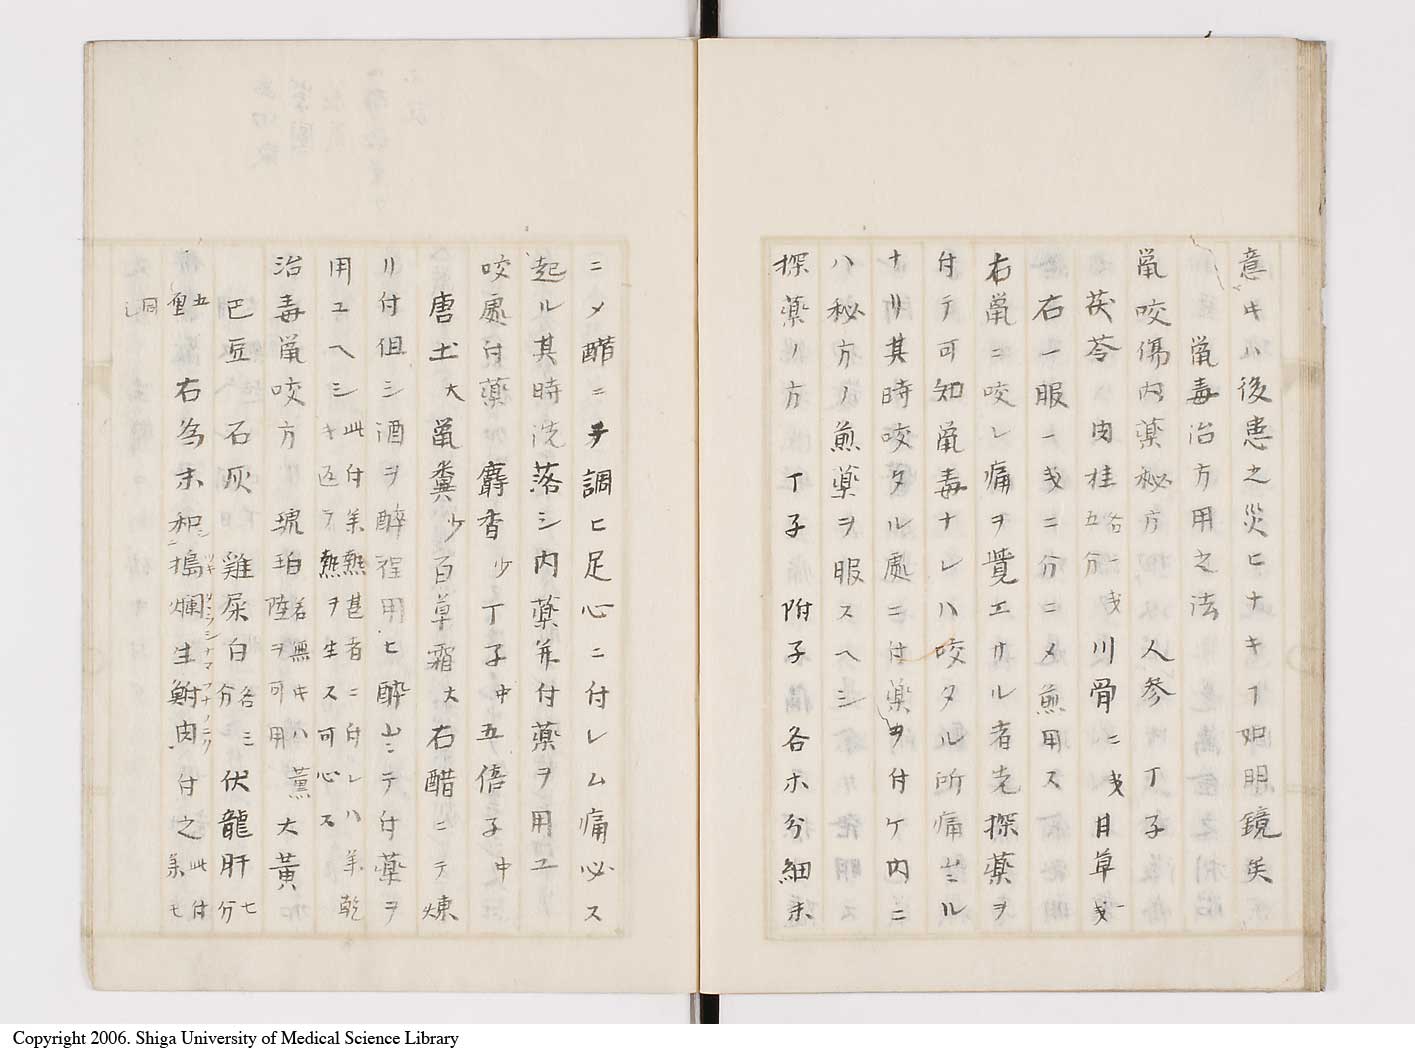 意ヰハ後患之災ヒナキヿ如明鏡矣
鼠毒治方用之法
鼠咬傷内薬秘方 人参 丁子
茯苓 肉桂各五分 川骨二戔 甘草一戔
右一服一戔二分ニメ煎用ス
右鼠ニ咬レ痛ヲ覚エサル者先探薬ヲ
付テ可知鼠毒ナレハ咬タル所痛出ル
ナリ其時咬タル處ニ付薬ヲ付ケ内ニ
ハ秘方ノ煎薬ヲ服スヘシ
探薬ノ方 丁子 附子各ホ分細末
ニメ醋ニテ調ヒ足心ニ付レム痛必ス
起ル其時洗落シ内薬并付薬ヲ用ユ
咬處付薬 麝香少 丁子中 五倍子中
唐土大 鼠糞少 百草霜大 右醋ニテ煉
リ付但シ酒ヲ醉程用ヒ醉出シテ付薬ヲ
用ユヘシ此付薬熱甚者ニ付レハ薬乾キ返テ熱ヲ生ス可心ス
治毒鼠咬方 琥珀若無キハ薫陸ヲ可用 大黄
巴豆 石灰 雞屎白各三分 伏龍肝七分
五重 右為末和搗爛生鮒肉付之此付薬七